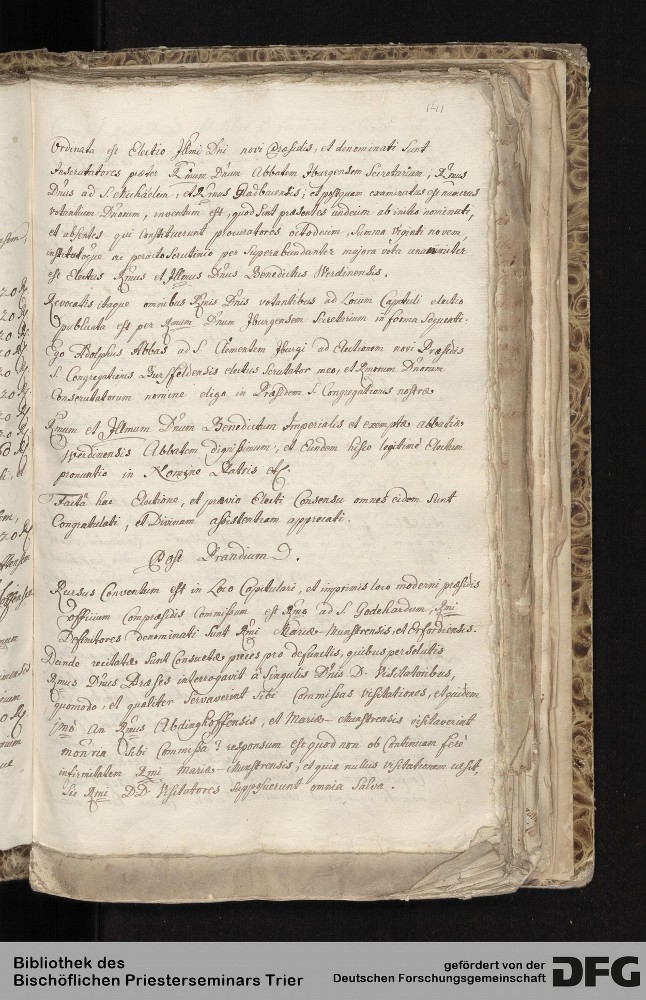 141
Ordinata est Electio Illmi Dni novi Præsidis, et denominati sunt
Inscrutatores præter Rmum Dnum Abbatem Iburgensem Secretarium, Rmus
Dnus ad S. Michaëlem, et Rmus Gladbacensis; et postquam examinatus est numerus
votantium Dnorum, inventum est, quod sint præsentes undecim ab initio nominati,
et absentes qui constituerunt procuratores octodecim, summa viginti novem,
institutoque ac peracto scrutinio per superabundanter majora vota unanimiter
est Electus Rmus et Illmus Dnus Benedictus Werdinensis.
Revocatis itaque omnibus Rmis Dnis votantibus ad Locum Capituli electio
publicata est per Rmum Dnum Iburgensem Secretarium in forma sequenti.
Ego Adolphus Abbas ad S. Clementem Iburgi ad Electionem novi Præsidis
S. Congregationis Bursfeldensis electus scrutator meo, et Rmorum Dnorum
Conscrutatorum nomine eligo in Præsidem S. Congregationis nostræ
Rmum et Illmum Dnum Benedictum Imperialis et exemptæ abbatiæ
Werdinensis Abbatem dignissimum, et Eundem hisce legitimè Electum
pronuntio in Nomine Patris etc.
Facta hac Electione, et prævio Electi Consensu omnes eidem sunt
Congratulati, et Divinam assistentiam apprecati.
Post Prandium.
Rursus Conventum est in Loco Capitulari, et imprimis loco moderni præsidis
officium Compræsidis Commissum est Rmo ad S. Godehardum, Rmi
Definitores denominati sunt Rmi Mariæ-Munstrensis, et Erfordiensis.
Deinde recitatæ sunt Consuetæ preces pro defunctis, quibus persolutis
Rmus Dnus Præses interrogavit à singulis Dnis D. Visitatoribus,
quomodo, et qualiter servaverint sibi Commissas visitationes, et quidem
imò An Rmus Abdinghoffensis, et Mariæ-Munstrensis visitaverint
monria sibi Commissa? responsum est quod non ob Continuam ferè
infirmitatem Rmi Mariæ-Munstrensis, et quia nullus visitationem
sic Rmi DD Visitatores supposuerunt omnia salva.
Bibliothek des
Bischöflichen Priesterseminars Trier
gefördert von der
Deutschen Forschungsgemeinschaft
DFG